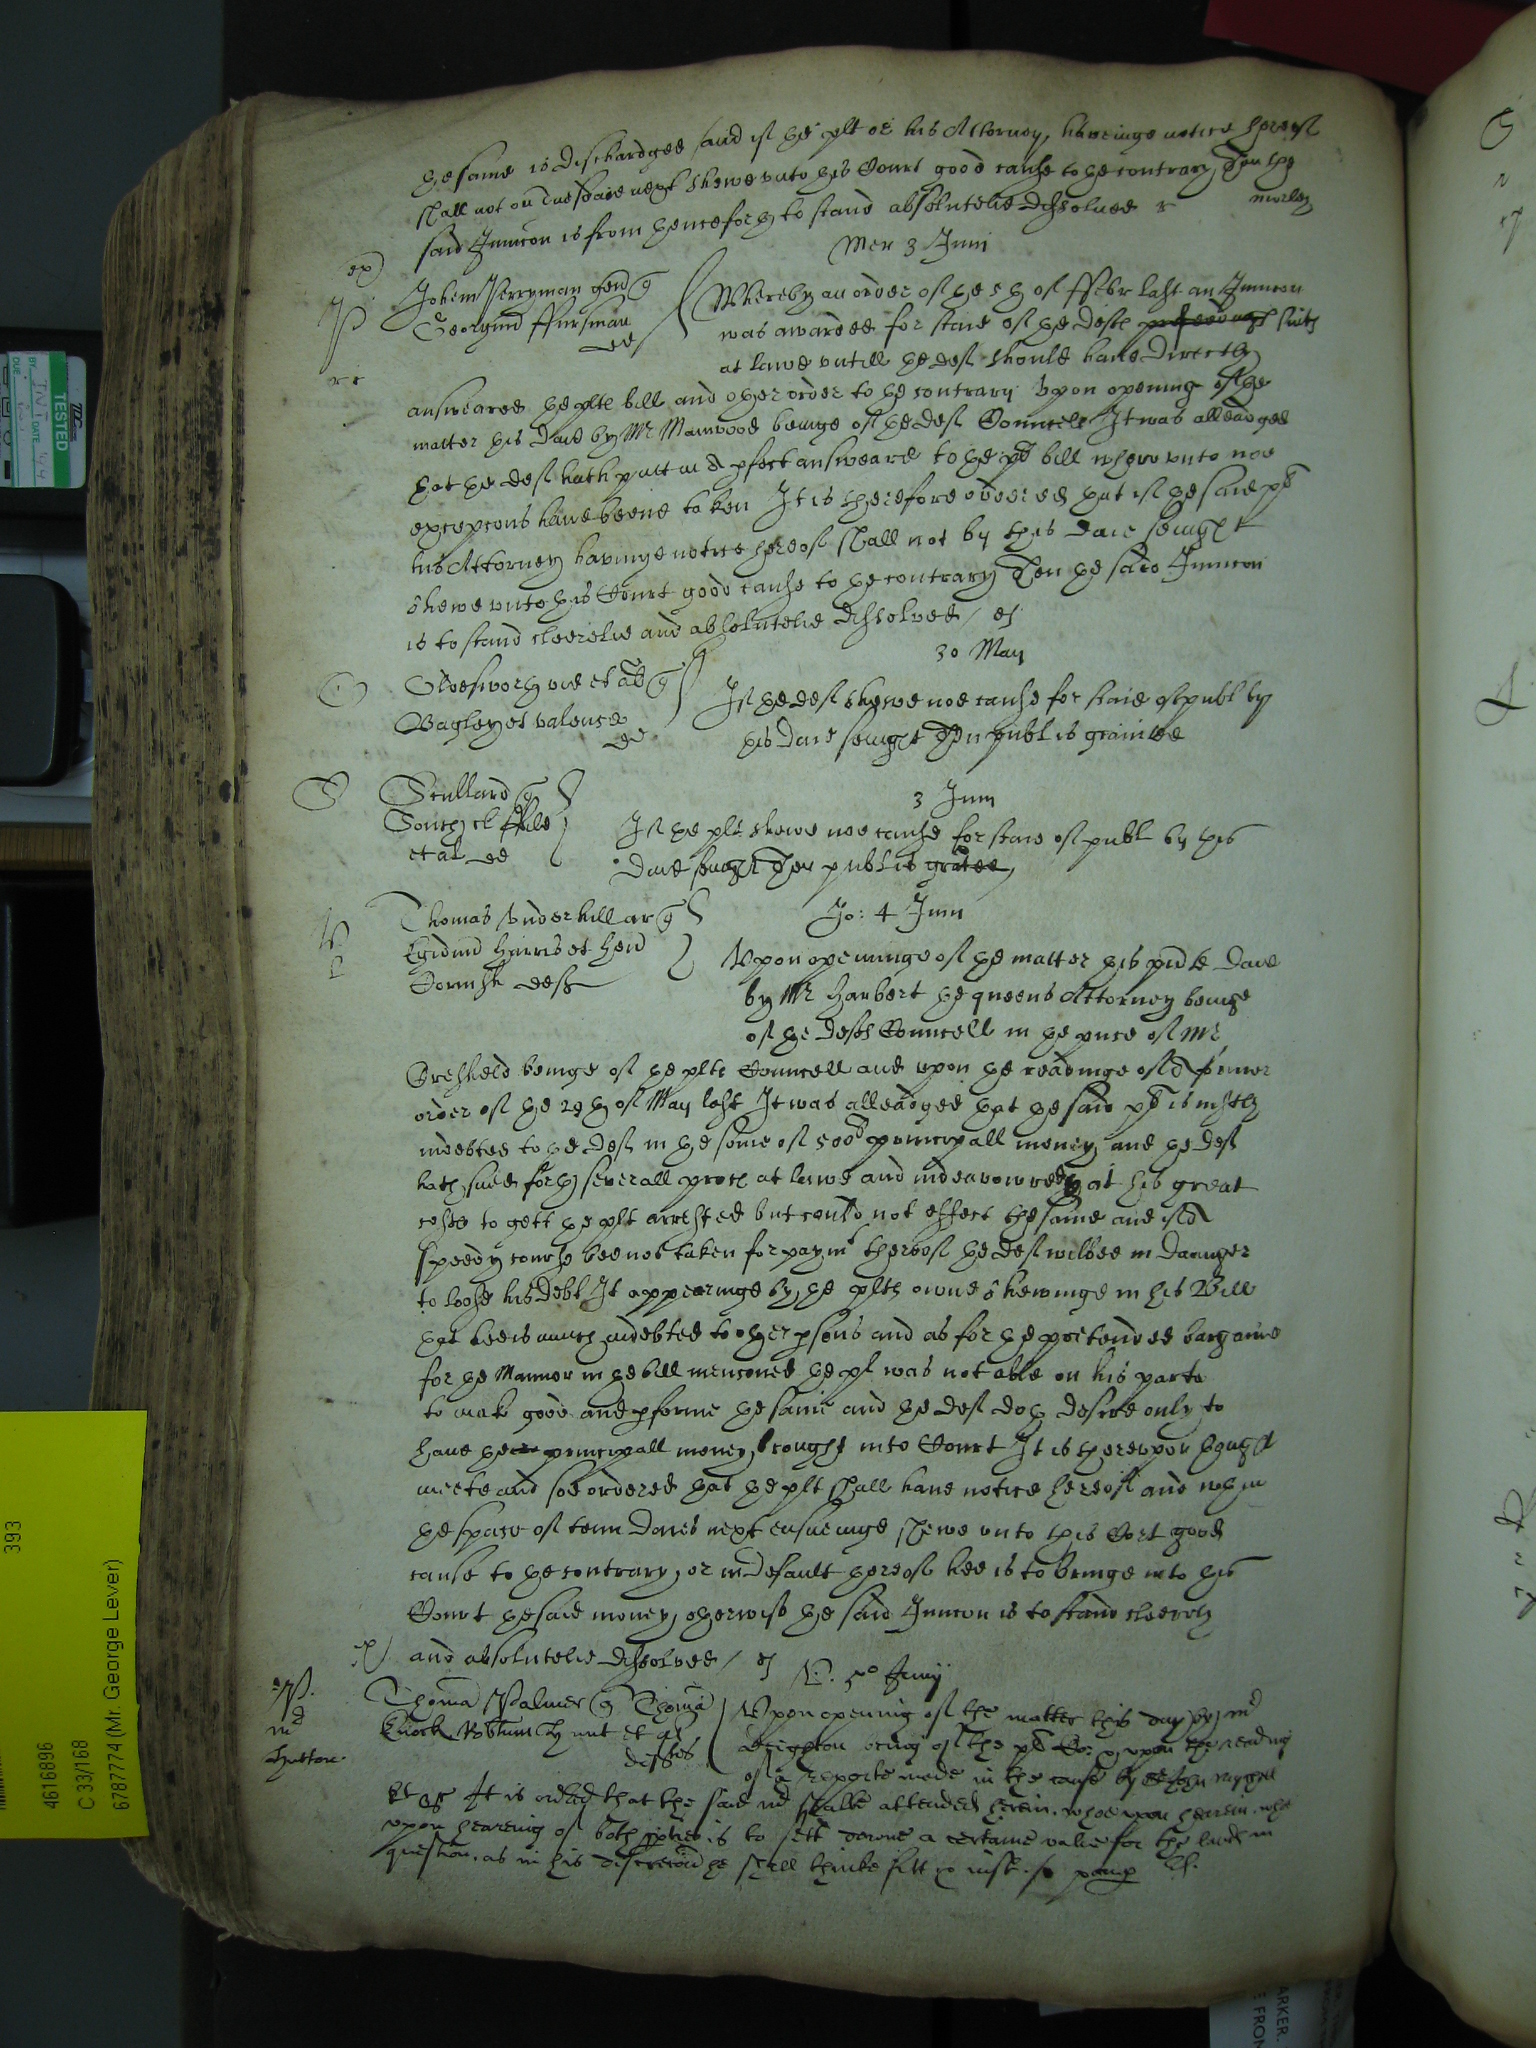 the same is dischardged and if the plt or his Attorney, haveinge notice hereof
shall not on Tuesdaie next shewe unto this Court good cause to the contrary, Then the
said Iniuncon is from henceforth to stand absolutelie dissolved
Mer 3 Junii
Johem Perryman gen qu
Georgiu ffursman
def
Whereby an order of the 5th of ffebr last an Iniuncon
was awarded for staie of the defts suits
at lawe untill the def should have directly
answeared the plts bill and other order to the contrary Upon opening of the
matter this daie by Mr Manwood beinge of the def Councell It was alleadged
that the def hath putt in a pfect answeare to the plts bill whereunto noe
excepcons have beene taken It is therefore ordered that if the said plt
his Attorney havinge notice hereof shall not by this daie sevenight
shewe unto this Court good cause to the contrary Then the said Iniuncon
is to stand cleerelie and absolutelie dissolved /
30 May
et al qu
Bagley et valence
def
If the def shewe noe cause for staie of publ by
this daie sevenight Then publ is graunted
Stullard qu
South et
et al def
3 Junii
If the plt shewe noe cause for staie of publ by this
daie sevenight Then publ is grated
Thomas Underhill ar qu
Egidiu Harris et Hen
defts
Jo: 4 Junii
Upon openinge of the matter this pnte daie
by Mr Harbert the queens Attorney beinge
of the defts Councell in the pnce of Mr
Createheld beinge of the plts Councell and upon the readinge of a former
order of the 29th of May last It was alleadged that the said plt is iustly
indebted to the def in the some of 500l principall money and the def
hath sued forth severall proces at lawe and indeavowred at his great
costs to gett the plt arrested but could not effect the same and if a
speedy course bee not taken for paymt thereof the def wilbee in daunger
to loose his debt It appearinge by the plts owne shewinge in his Bill
that hee is much indebted to other psons and as for the pretended bargaine
for the Mannor in the bill menconed the plt was not able on his parte
to make good and pforme the same and the def doth desire only to
have the principall money brought into Court It is thereupon thought
meete and soe ordered that the plt shall have notice hereof and wthin
the space of tenn daies next ensueinge shewe unto this Cort good
cause to the contrary, or in default thereof hee is to bringe into this
Court the said money, otherwise the said Iniuncon is to stand cleerely
and absolutelie dissolved /
V. 5o Junij
Thoma Palmer qu Thoma
Knock et al
deftes
Upon opening of the matter this day by mr
being of the plts Co: & upon the reading
of a reporte made in the cause by
It is ordred that the said mr shalbe attended herein, whoe
upon hearing of both pties is to sett downe a certaine value for the lands in
question, as in his discrecon he shall thinke fitt
mr
Hutton
TESTED
393
4616896
C 33/168
6787774 (Mr. George Lever)